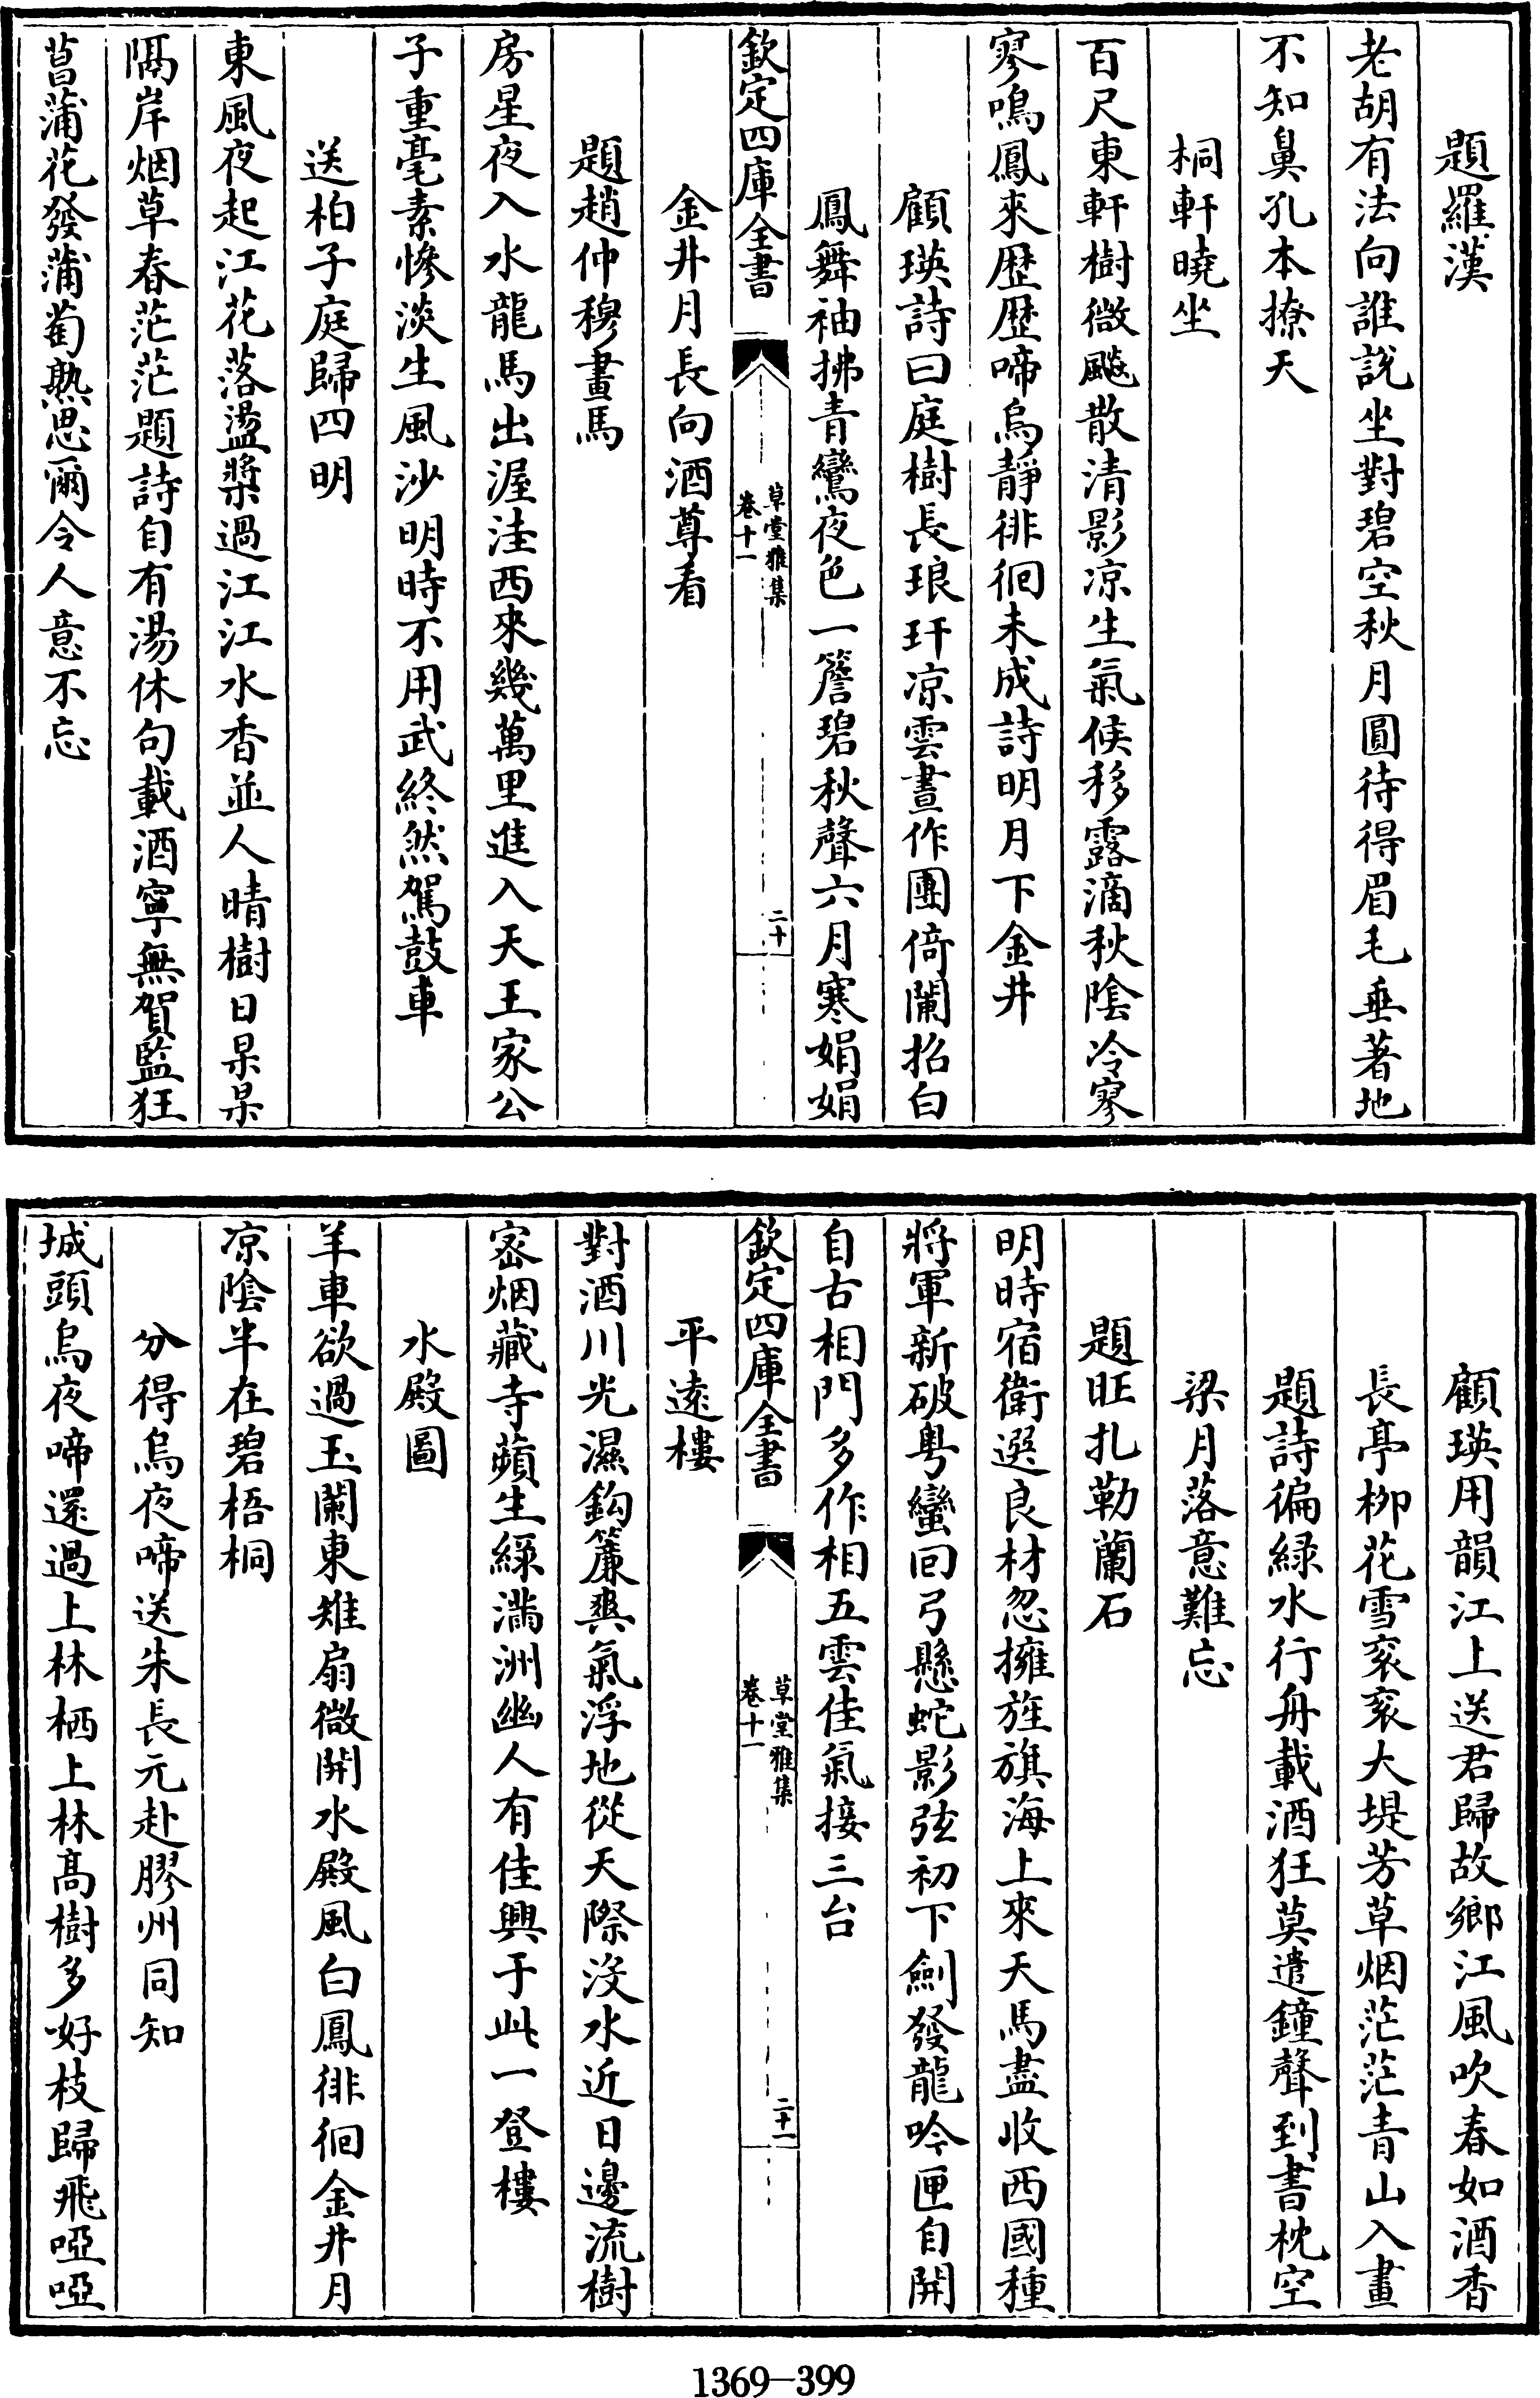 題羅漢
老胡有法向誰說坐對碧空秋月圓待得眉毛垂著地
不知鼻孔本撩天
桐軒曉坐
百尺東軒樹微颸散清影凉生氣候移露滴秋陰冷寥
寥鳴鳳來歴歴啼烏靜徘徊未成詩明月下金井
顧瑛詩曰庭樹長琅玕凉雲晝作團倚闌招白
鳳舞袖拂青鸞夜色一簷碧秋聲六月寒娟娟
欽定四庫全書
草堂雅集
卷十一
二十
金井月長向酒尊看
題趙仲穆畫馬
房星夜入水龍馬出渥洼西來幾萬里進入天王家公
子重毫素慘淡生風沙明時不用武終然駕鼓車
送柏子庭歸四明
東風夜起江花落盪槳過江江水香並人晴樹日杲杲
隔岸烟草春茫茫題詩自有湯休句載酒寧無賀監狂
菖蒲花發蒲萄熟思爾令人意不忘
顧瑛用韻江上送君歸故鄉江風吹春如酒香
長亭柳花雪衮衮大堤芳草烟茫茫青山入畫
題詩徧緑水行舟載酒狂莫遣鐘聲到書枕空
梁月落意難忘
題旺扎勒蘭石
明時宿衛選良材忽擁旌旗海上來天馬盡收西國種
將軍新破粤蠻回弓懸蛇影弦初下劍發龍吟匣自開
自古相門多作相五雲佳氣接三台
欽定四庫全書
草堂雅集
卷十一
二十一
平遠樓
對酒川光濕鈎簾爽氣浮地從天際没水近日邊流樹
宻烟藏寺蘋生緑滿洲幽人有佳興于此一登樓
水殿圖
羊車欲過玉闌東雉扇微開水殿風白鳳徘徊金井月
凉陰半在碧梧桐
分得烏夜啼送朱長元赴膠州同知
城頭烏夜啼還過上林栖上林高樹多好枝歸飛啞啞
1369—399